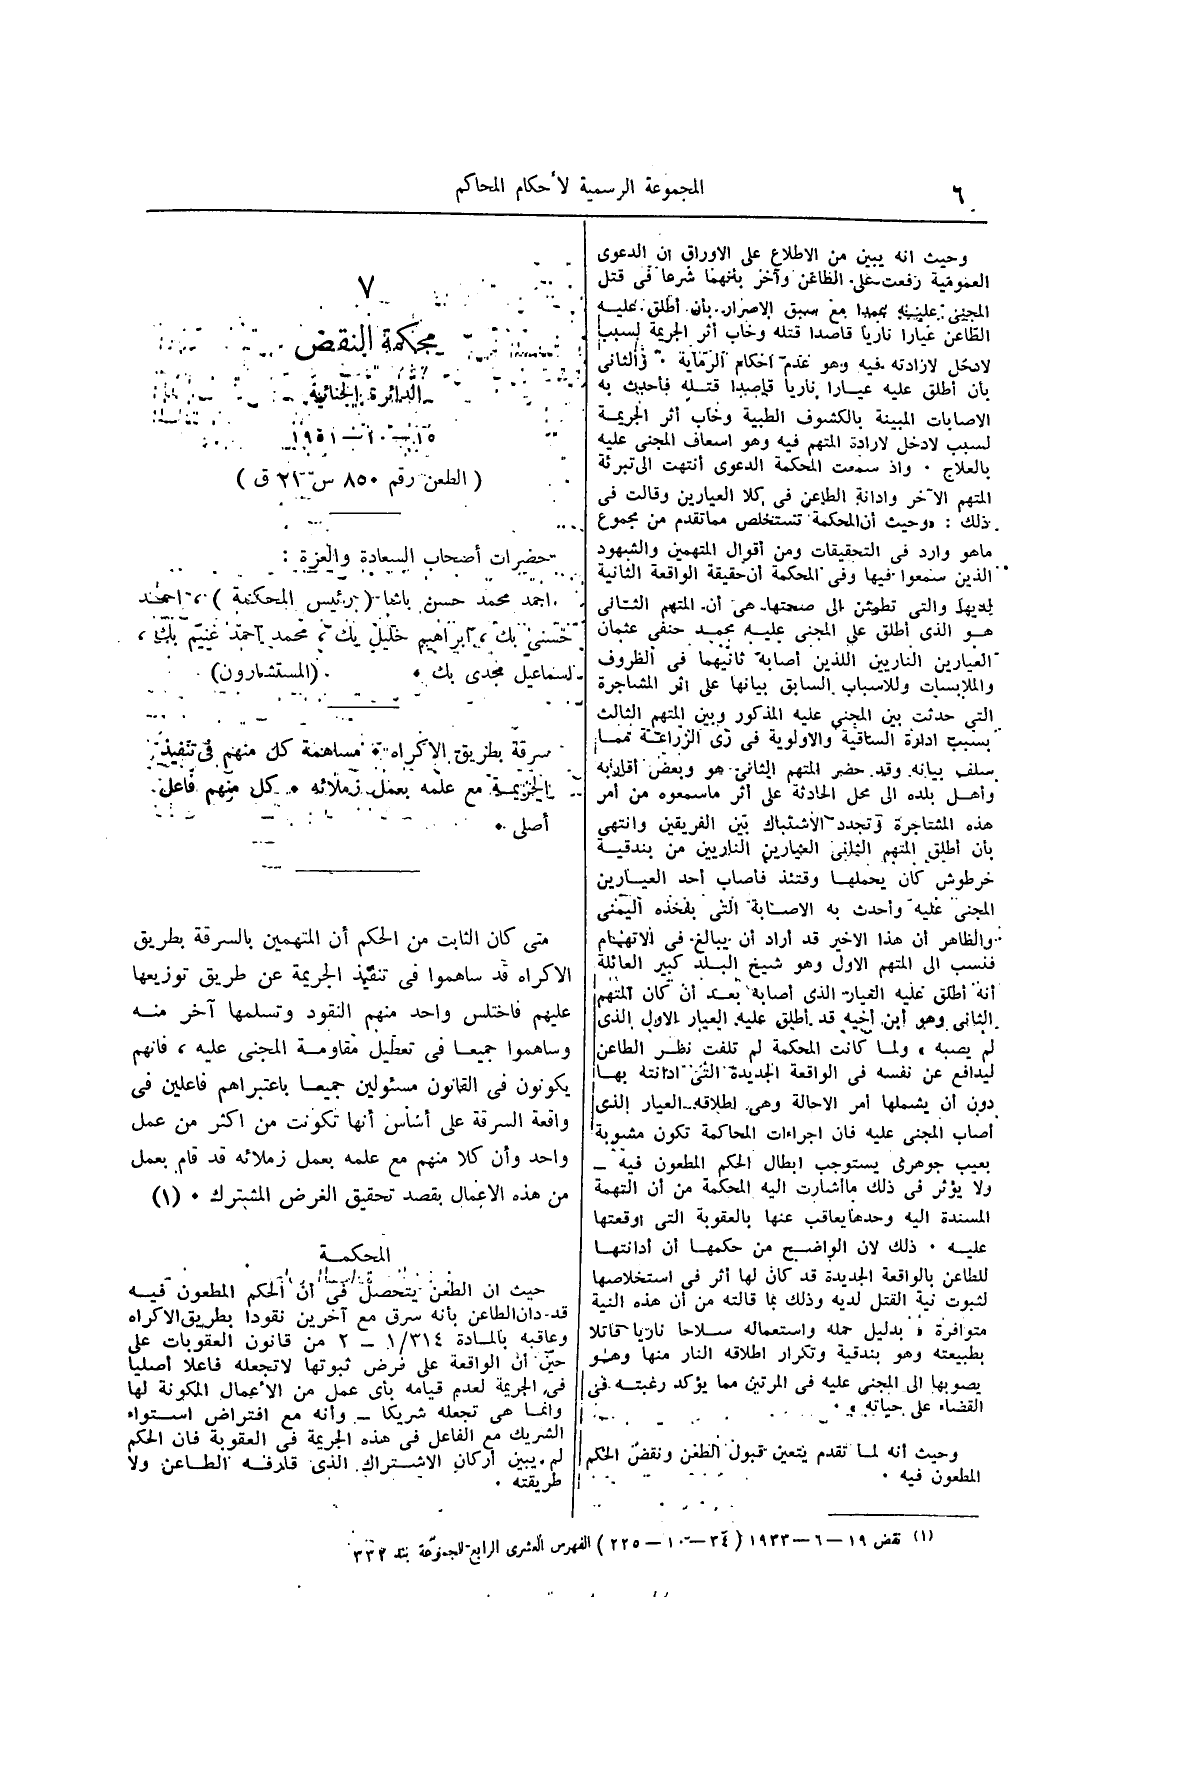 ٦
المجموعة الرسمية لأحكام المحاكم
وحيث انه يبين من الاطلاع على الاوراق ان الدعوى
العمومية رفعت على الطاعن وآخر بتهمتها شرعا فى قتل
المجنى عليه عمدا مع سبق الاصرار بأن أطلق عليه
الطاعن عيارا ناريا قاصدا قتله وخاب أثر الجريمة لسبب
لادخل لارادته فيه وهو عدم احكام الرماية ٠ والثانى
بأن أطلق عليه عيارا ناريا قاصدا قتله فأحدث به
الاصابات المبينة بالكشوف الطبية وخاب أثر الجريمة
لسبب لادخل لارادة المتهم فيه وهو اسعاف المجنى عليه
بالعلاج ٠ واذ سمعت المحكمة الدعوى أنتهت الى تبرئة
المتهم الآخر وادانة الطاعن فى كلا العيارين وقالت فى
ذلك : «وحيث أن المحكمة تستخلص مما تقدم من مجموع
ماهو وارد فى التحقيقات ومن أقوال المتهمين والشهود
الذين سمعوا فيها وفى المحكمة أن حقيقة الواقعة الثانية
لديها والتى تطمئن الى صحتها هى أن المتهم الثانى
هو الذى أطلق على المجنى عليه محمد حنفى عثمان
العيارين الناريين اللذين أصابه ثانيهما فى الظروف
والملابسات وللاسباب السابق بيانها على اثر المشاجرة
التى حدثت بين المجنى عليه المذكور وبين المتهم الثالث
بسبب ادارة الساقية والاولوية فى رى الزراعة مما
سلف بيانه وقد حضر المتهم الثانى هو وبعض أقاربه
وأهل بلده الى محل الحادثة على أثر ماسمعوه من أمر
هذه المشاجرة وتجدد الأشتباك بين الفريقين وانتهى
بأن أطلق المتهم الثانى العيارين الناريين من بندقية
خرطوش كان يحملها وقتئذ فأصاب أحد العيارين
المجنى عليه وأحدث به الاصابة التى بفخذه اليمنى
والظاهر أن هذا الاخير قد أراد أن يبالغ فى الاتهام
فنسب الى المتهم الاول وهو شيخ البلد كبير العائلة
أنه أطلق عليه العيار الذى أصابه بعد أن كان المتهم
الثانى وهو أبن أخيه قد أطلق عليه العيار الاول الذى
لم يصبه » ولما كانت المحكمة لم تلفت نظر الطاعن
ليدافع عن نفسه فى الواقعة الجديدة التى ادانته بها
دون أن يشملها أمر الاحالة وهى اطلاقه العيار الذى
أصاب المجنى عليه فان اجراءات المحاكمة تكون مشوبة
بعيب جوهرى يستوجب ابطال الحكم المطعون فيه –
ولا يؤثر فى ذلك ماأشارت اليه المحكمة من أن التهمة
المسندة اليه وحدها يعاقب عنها بالعقوبة التى اوقعتها
عليه ٠ ذلك لان الواضح من حكمها أن أدانتها
للطاعن بالواقعة الجديدة قد كان لها أثر فى استخلاصها
لثبوت نية القتل لديه وذلك بما قالته من أن هذه النية
متوافرة « بدليل حمله واستعماله سلاحا ناريا قاتلا
بطبيعته وهو بندقية وتكرار اطلاقه النار منها وهو
يصوبها الى المجنى عليه فى المرتين مما يؤكد رغبته فى
القضاء على حياته » ٠
وحيث أنه لما تقدم يتعين قبول الطعن ونقض الحكم
المطعون فيه ٠
٧
محكمة النقض
الدائرة الجنائية
١٥–١٠–١٩٥١
( الطعن رقم ٨٥٠ س ٢١ ق )
حضرات أصحاب السعادة والعزة :
احمد محمد حسن باشا (رئيس المحكمة) ، احمد
حسنى بك ، ابراهيم خليل بك ، محمد احمد غنيم بك ،
اسماعيل مجدى بك ٠ (المستشارون)
سرقة بطريق الاكراه ٠ مساهمة كل منهم فى تنفيذ
الجريمة مع علمه بعمل زملائه ٠ كل منهم فاعل
أصلى ٠
متى كان الثابت من الحكم أن المتهمين بالسرقة بطريق
الاكراه قد ساهموا فى تنفيذ الجريمة عن طريق توزيعها
عليهم فاختلس واحد منهم النقود وتسلمها آخر منه
وساهموا جميعا فى تعطيل مقاومة المجنى عليه ، فانهم
يكونون فى القانون مسئولين جميعا باعتبراهم فاعلين فى
واقعة السرقة على أساس أنها تكونت من اكثر من عمل
واحد وأن كلا منهم مع علمه بعمل زملائه قد قام بعمل
من هذه الاعمال بقصد تحقيق الغرض المشترك ٠ (١)
المحكمة
حيث ان الطعن يتحصل فى أن الحكم المطعون فيه
قد دان الطاعن بأنه سرق مع آخرين نقودا بطريق الاكراه
وعاقبه بالمادة ٣١٤/١ – ٢ من قانون العقوبات على
حين أن الواقعة على فرض ثبوتها لاتجعله فاعلا أصليا
فى الجريمة لعدم قيامه بأى عمل من الأعمال المكونة لها
وانما هى تجعله شريكا – وأنه مع افتراض استواء
الشريك مع الفاعل فى هذه الجريمة فى العقوبة فان الحكم
لم يبين أركان الاشتراك الذى قارفه الطاعن ولا
طريقته ٠
(١) نقض ١٩–٦–١٩٣٣ (٣٤–١٠–٢٢٥) الفهرس العشرى الرابع للمجموعة بند ٣٣٢